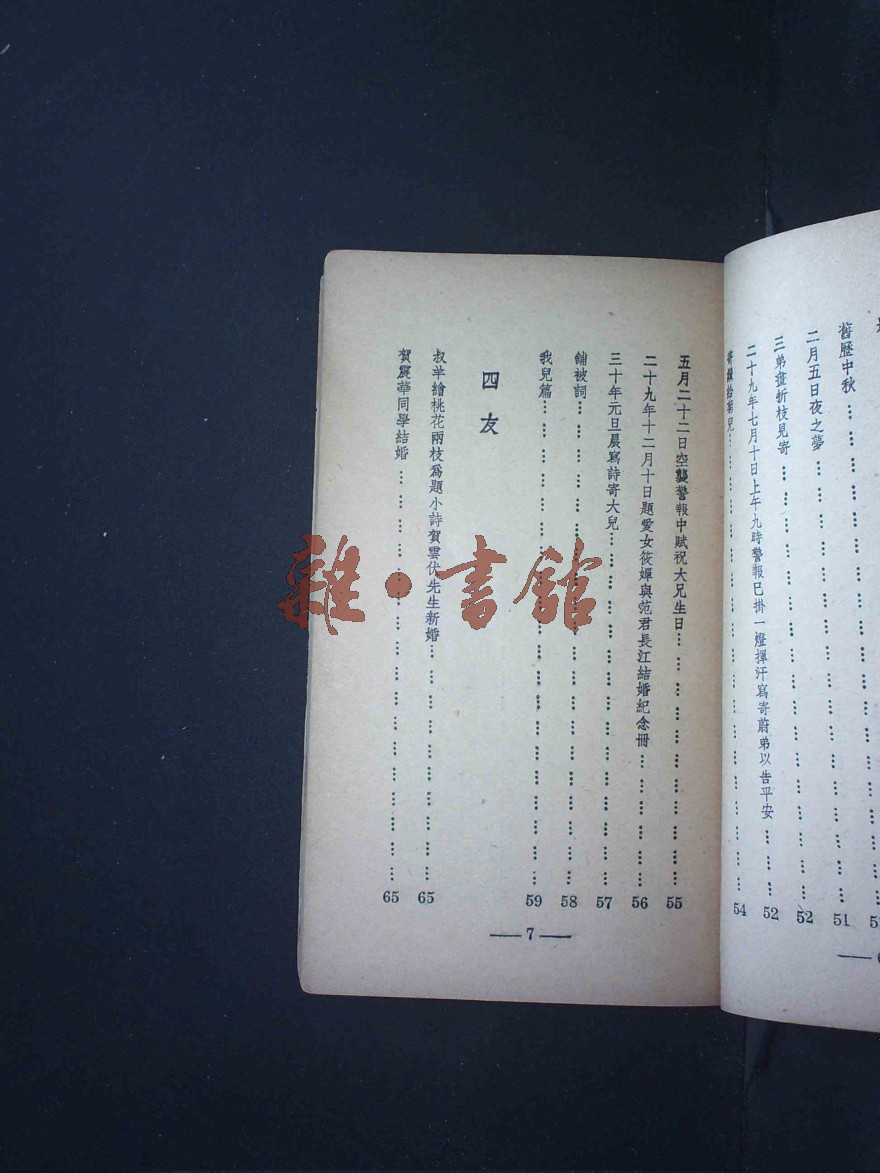 舊歷中秋 … 51
二月五日夜之夢 … 52
三弟畫折枝見寄 … 52
二十九年七月十日上午九時警報已掛一燈揮汗寫寄蔚弟以告平安 … 54
五月二十二日空襲警報中賦祝大兄生日 … 55
二十九年十二月十日題愛女筱嬋與范君長江結婚紀念冊 … 56
三十年元旦晨寫詩寄大兒 … 57
舖被詞 … 58
我兒篇 … 59
四友
叔羊繪桃花兩枝爲題小詩賀雲伏先生新婚 … 65
賀麗華同學結婚 … 65
— 7 —
雜·書館